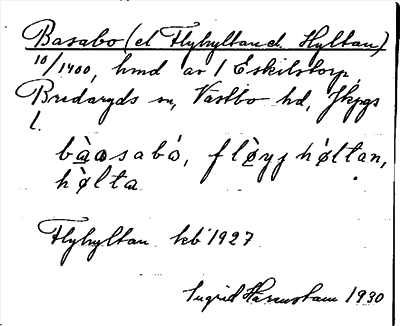 Basabo (el Flyhyltan el. Hyltan)
10/1400, hmd av 1 Eskilstorp,
Bredaryds sn, Västbo hd, Jkpgs
l.
bàosabò, flòyj hòltan,
hòlta
Flyhyltan kb 1927
Ingrid 1930